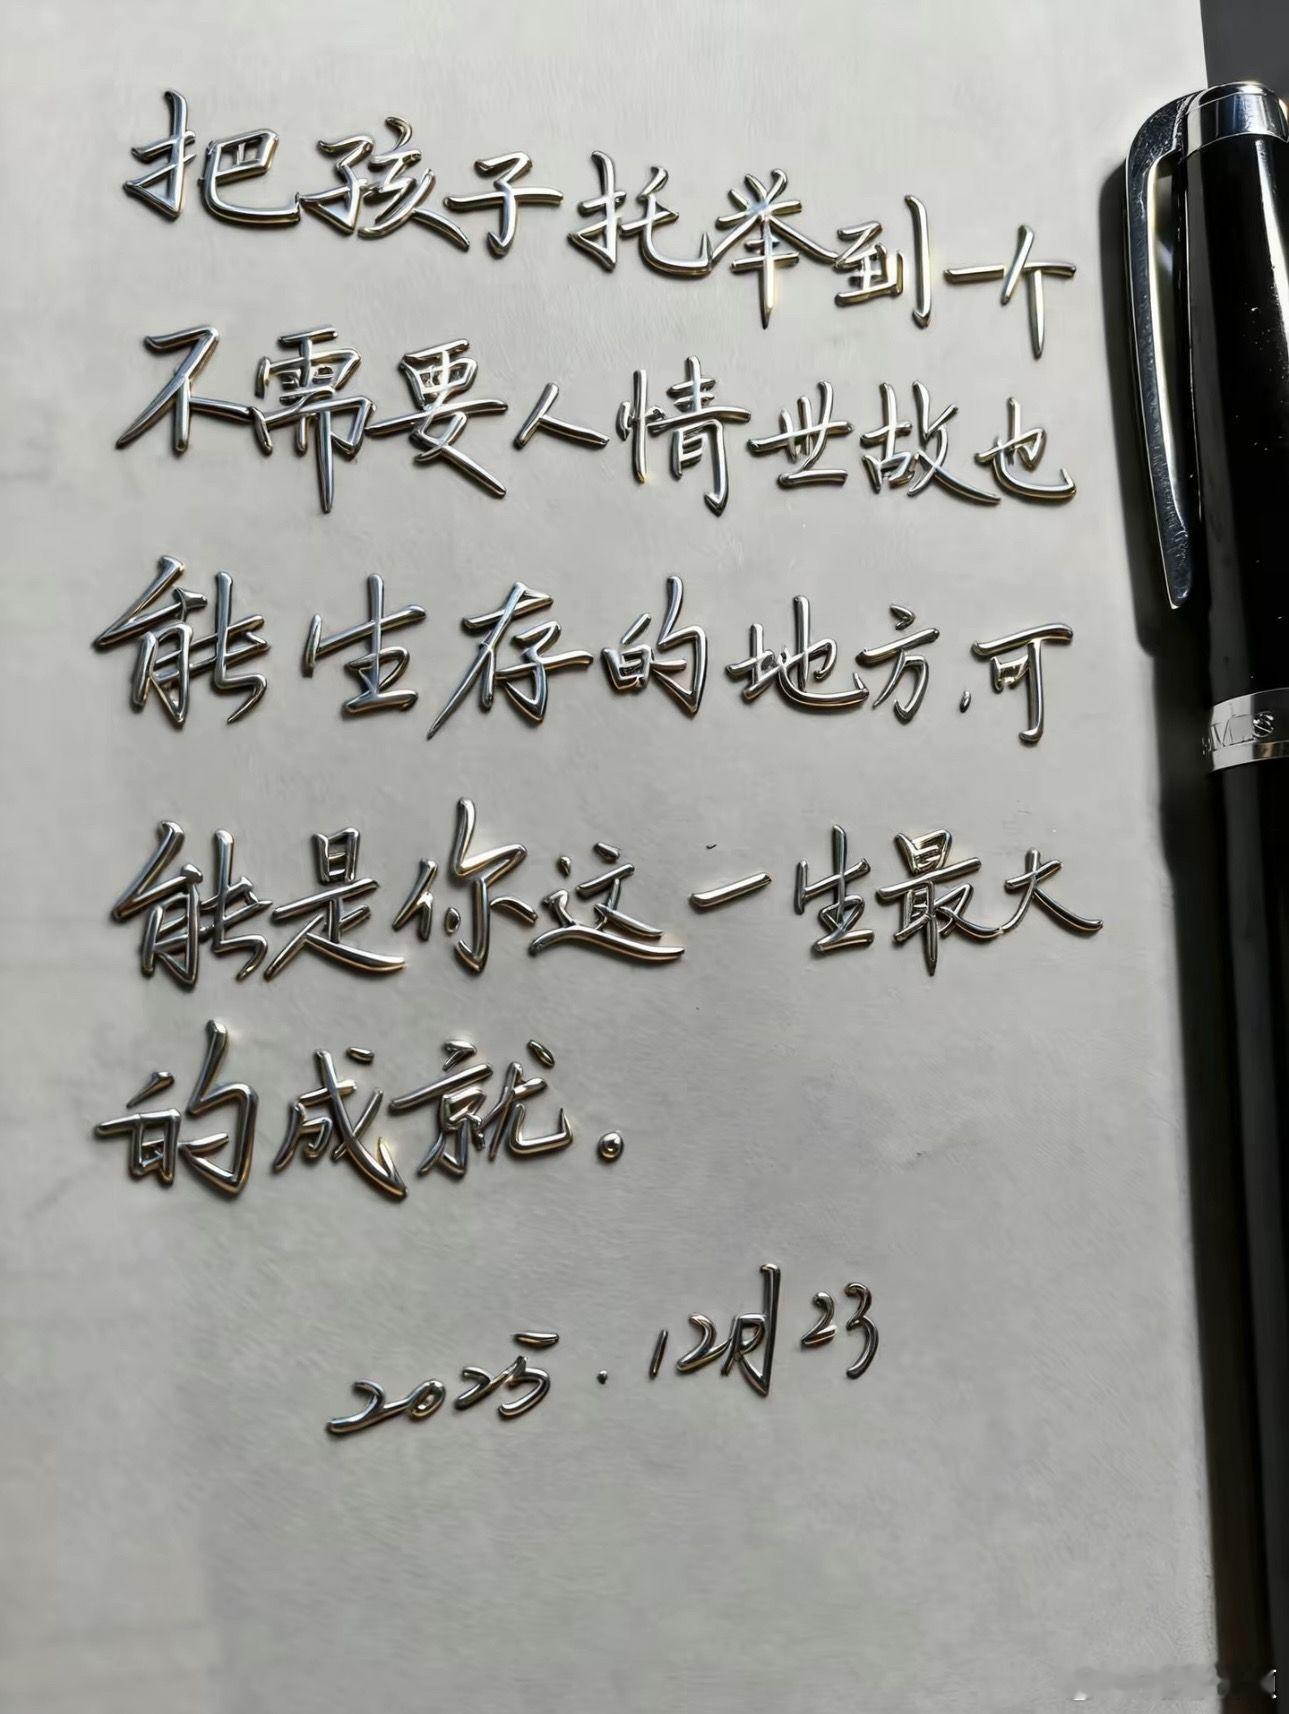 把孩子托举到一个
不需要人情世故也
能生存的地方.可
能是你这一生最大
的成就。
2025.12月23